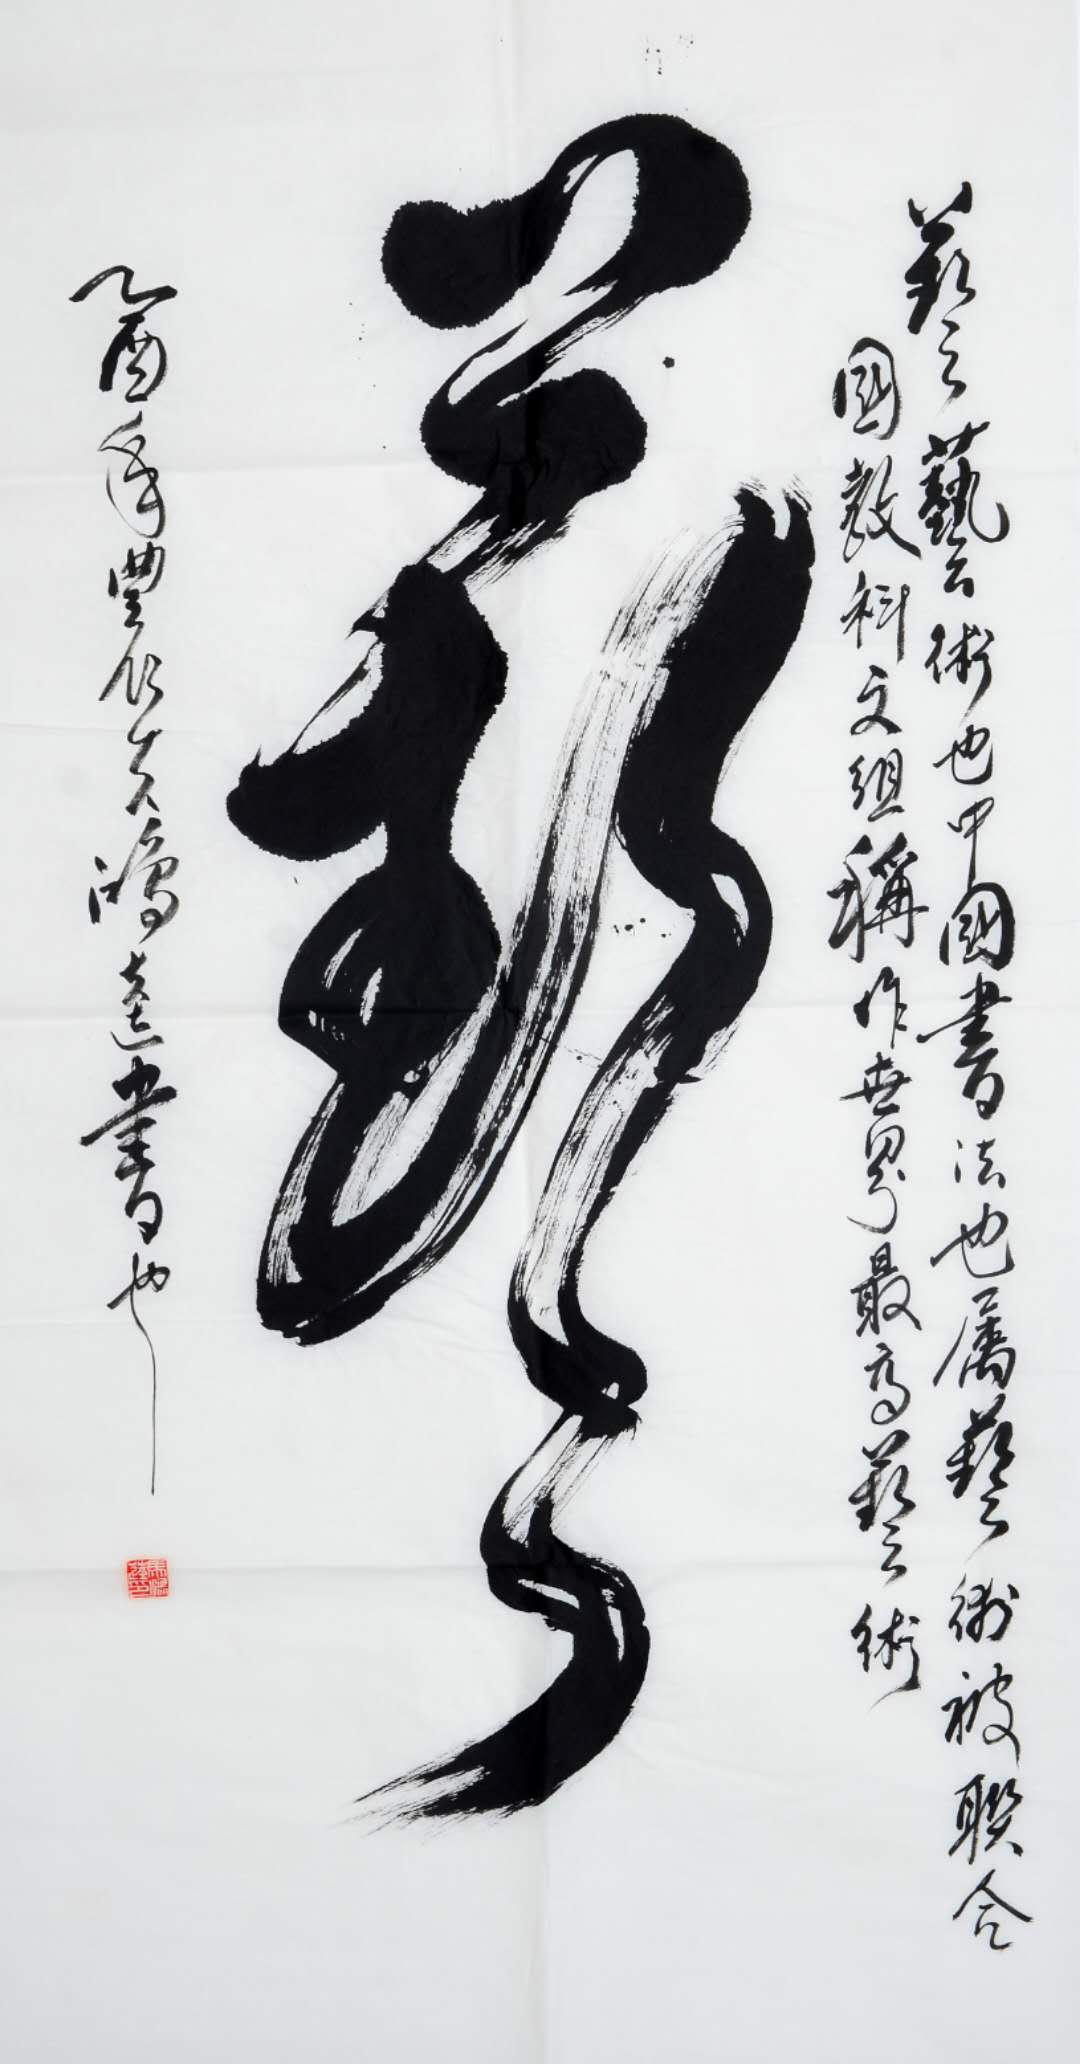 藝藝術也中國書法也屬藝術被聯合
國教科文組稱作世界最高藝術
藝
乙酉年豐仁夫鴻達書也